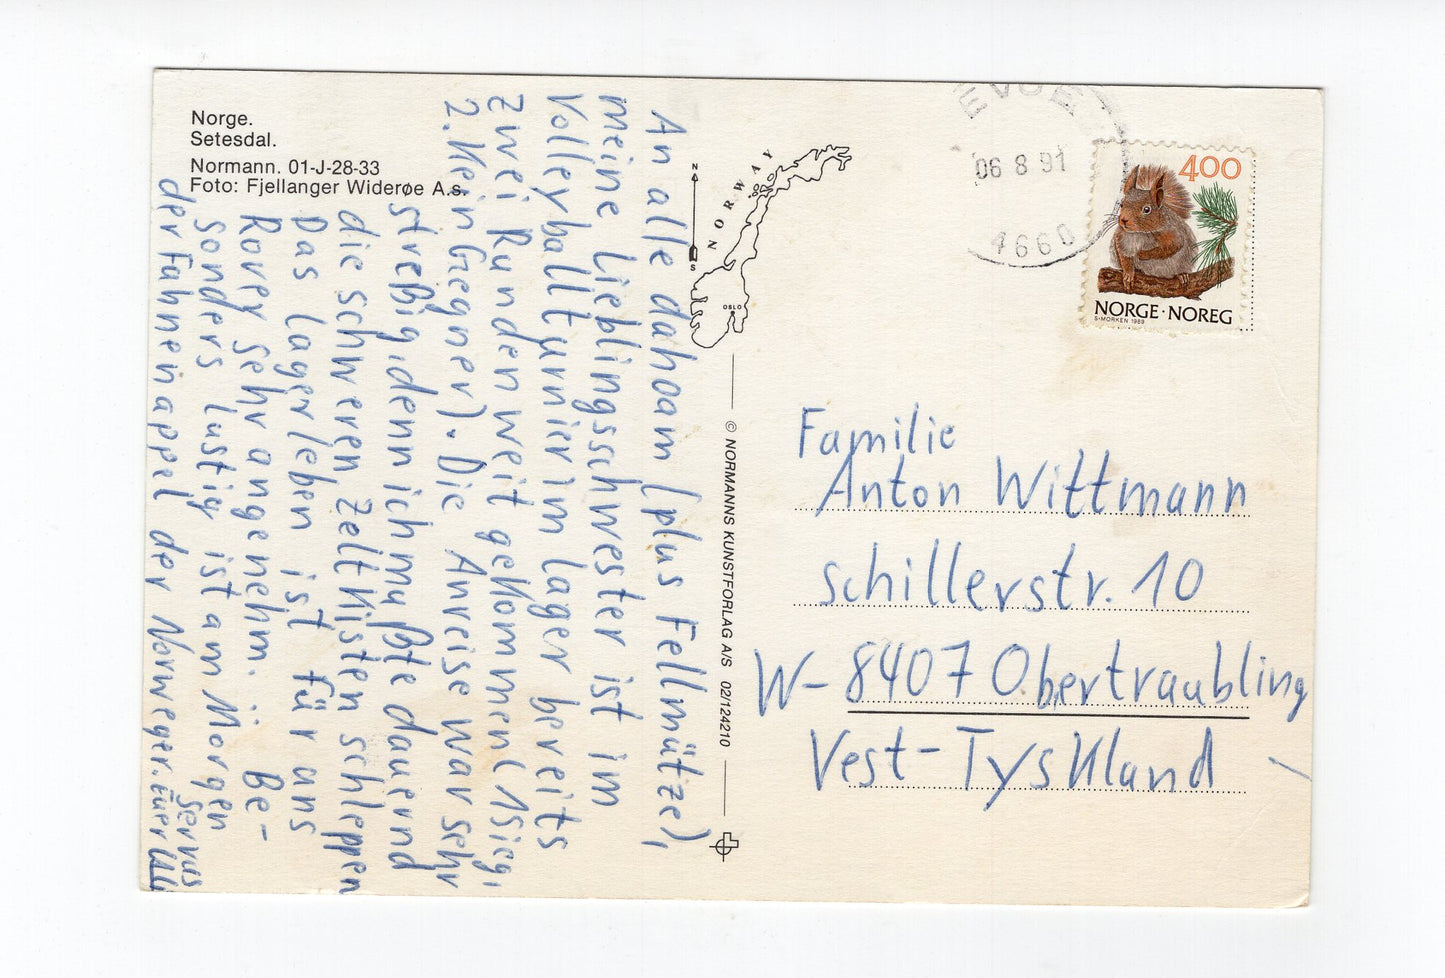 Norge.
Setesdal.
Normann. 01-J-28-33
Foto: Fjellanger Widerøe A.s.
An alle dahoam (plus Fellmütze),
meine Lieblingsschwester ist im
Volleyballturnier im Lager bereits
zwei Runden weit gekommen (1sieg,
2. Kein Gegner). Die Anreise war sehr
streßig, denn ich mußte dauernd
die schweren Zeltkisten schleppen
Das Lagerleben ist für ans
Rover sehr angenehm. Be-
sonders lustig ist am Morgen
der Fahnenappel der Norweger.
Servus
Euer Uli
NORWAY
N
S
OSLO
© NORMANNS KUNSTFORLAG A/S 02/124210
EVJE
06 8 91
4660
400
NORGE·NOREG
S·MORKEN 1989
Familie
Anton Wittmann
Schillerstr. 10
W-8407 Obertraubling
Vest-Tyskland